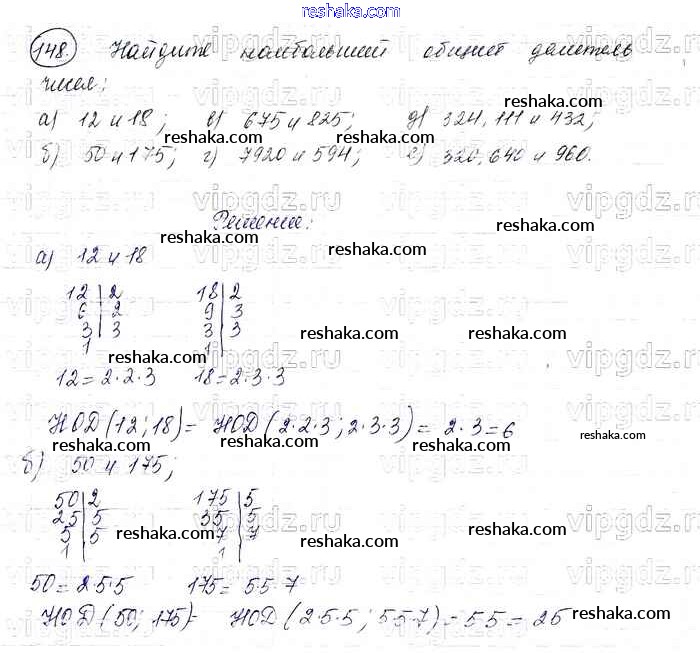 reshaka.com
148. Найдите наибольший общий делитель
чисел:
а) 12 и 18; в) 675 и 825; д) 324, 111 и 432;
б) 50 и 175; г) 7920 и 594; е) 320, 640 и 960.
Решение:
а) 12 и 18
12|2 18|2
6|2 9|3
3|3 3|3
1| 1|
12=2·2·3 18=2·3·3
НОД(12;18)= НОД(2·2·3;2·3·3)= 2·3=6
б) 50 и 175;
50|2 175|5
25|5 35|5
5|5 7|7
1| 1|
50=2·5·5 175=5·5·7
НОД(50; 175)= НОД(2·5·5; 5·5·7)=5·5=25
reshaka.com
vipgdz.ru